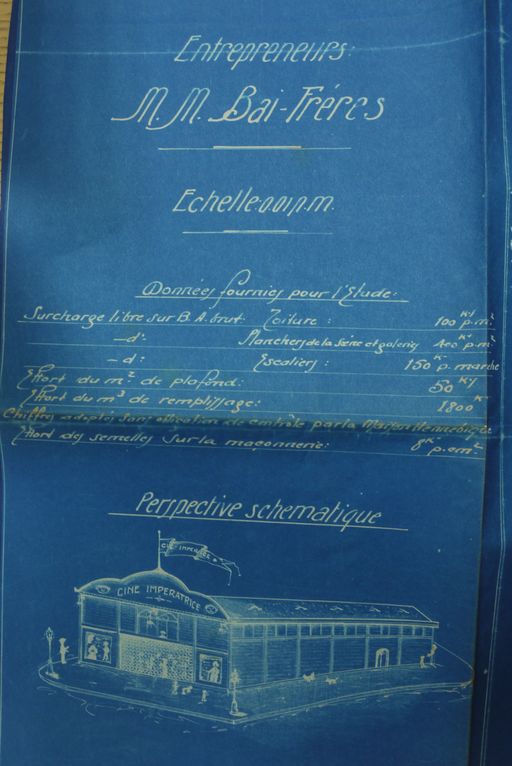 Entrepreneurs:
M. M. Bai-Fréres
Echelle 0.01 p.m.
Données fournies pour l'Etude:
Surcharge libre sur B.A. brut. Toiture: 100 K⁰ˢ p.m²
-d°- Planchers de la scène et galeries 400 K. p.m²
-d: Escaliers: 150 K. p. marche
Effort du m² de plafond: 50 Kˢ
Effort du m³ de remplissage: 1800 K.
Chiffres adoptés sans obligation de contrôle par la Maison Hennebique
Effort des semelles sur la maçonnerie: 8 K. p.cm²
Perspective schematique
CINE IMPER
CINE IMPERATRICE